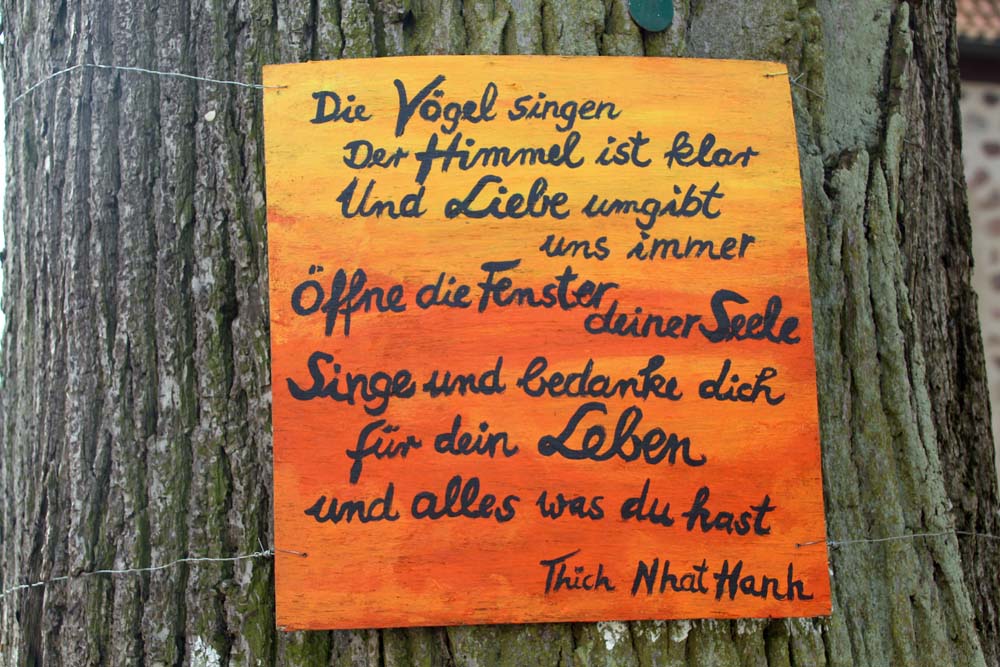 Die Vögel singen
Der Himmel ist klar
Und Liebe umgibt
uns immer
Öffne die Fenster
deiner Seele
Singe und bedanke dich
für dein Leben
und alles was du hast
Thich Nhat Hanh